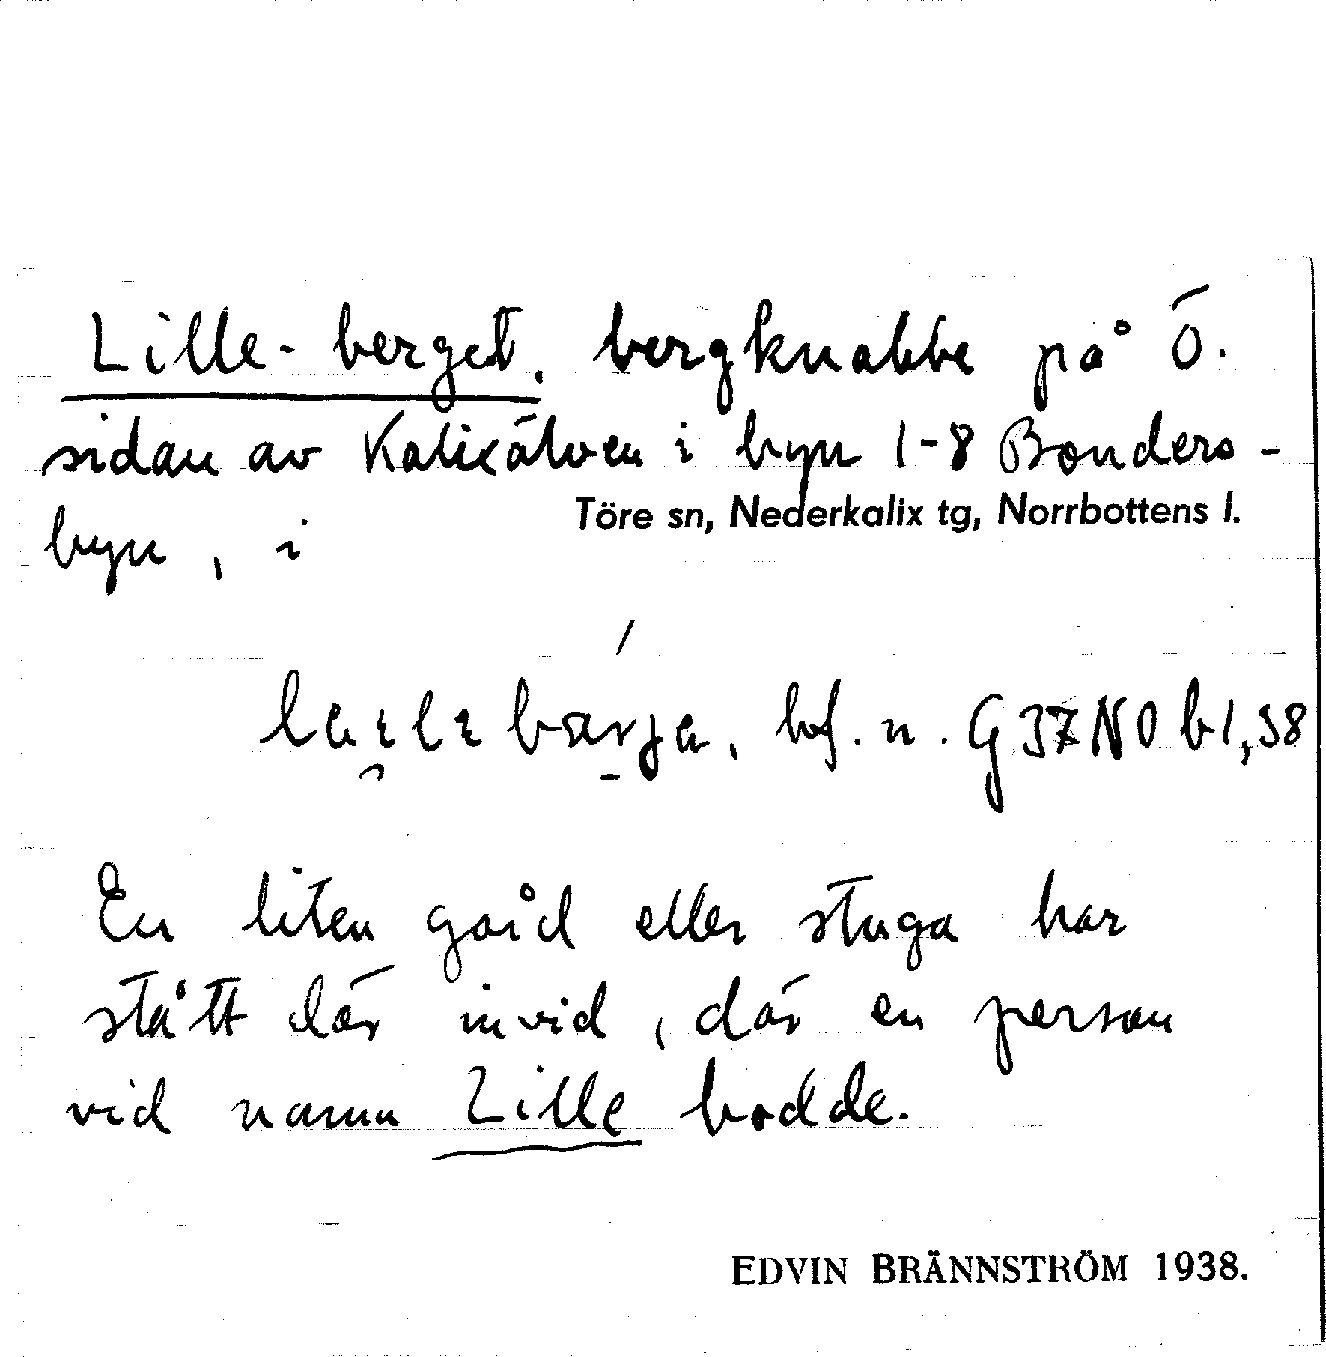 Lille-berget, bergknabbe på Ö.
sidan av Kalixälven i byn 1-8 Bonders-
byn, i
Töre sn, Nederkalix tg, Norrbottens l.
bf. n. G37NO b1,38
En liten gård eller stuga har
stått där invid, där en person
vid namn Lille bodde.
EDVIN BRÄNNSTRÖM 1938.